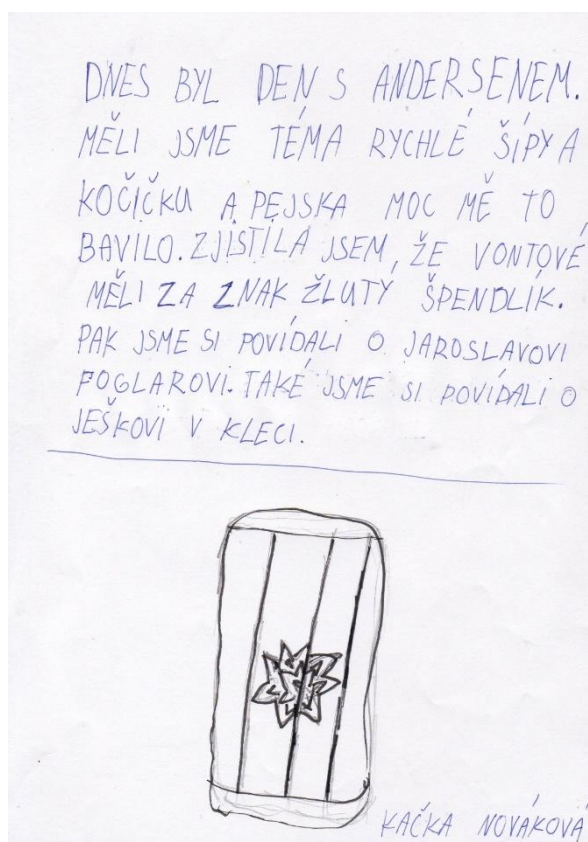 DNES BYL DEN S ANDERSENEM.
MĚLI JSME TÉMA RYCHLÉ ŠÍPY A
KOČIČKU A PEJSKA MOC MĚ TO
BAVILO. ZJISTILA JSEM, ŽE VONTOVÉ
MĚLI ZA ZNAK ŽLUTÝ ŠPENDLÍK.
PAK JSME SI POVÍDALI O JAROSLAVOVI
FOGLAROVI. TAKÉ JSME SI POVÍDALI O
JEŠKOVI V KLECI.
KAČKA NOVÁKOVÁ